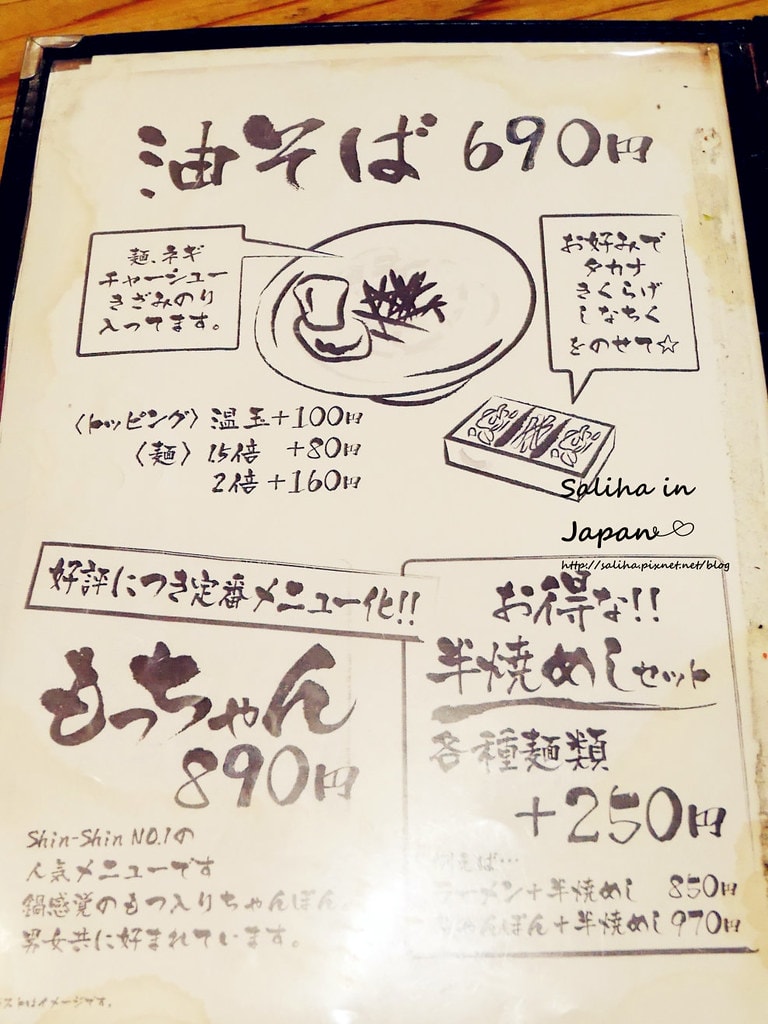 油そば 690円
麺、ネギ
チャーシュー
きざみのり
入ってます。
お好みで
タカナ
きくらげ
しなちく
をのせて☆
〈トッピング〉温玉+100円
〈麺〉1.5倍 +80円
2倍+160円
Saliha in
Japan
http://saliha.pixnet.net/blog
好評につき定番メニュー化!!
もっちゃん
890円
Shin-Shin NO.1の
人気メニューです
鍋感覚のもつ入りちゃんぽん。
男女共に好まれています。
お得な!!
半焼めしセット
各種麺類
+250円
例えば…
ラーメン+半焼めし 850円
ちゃんぽん+半焼めし 970円
はイメージです。